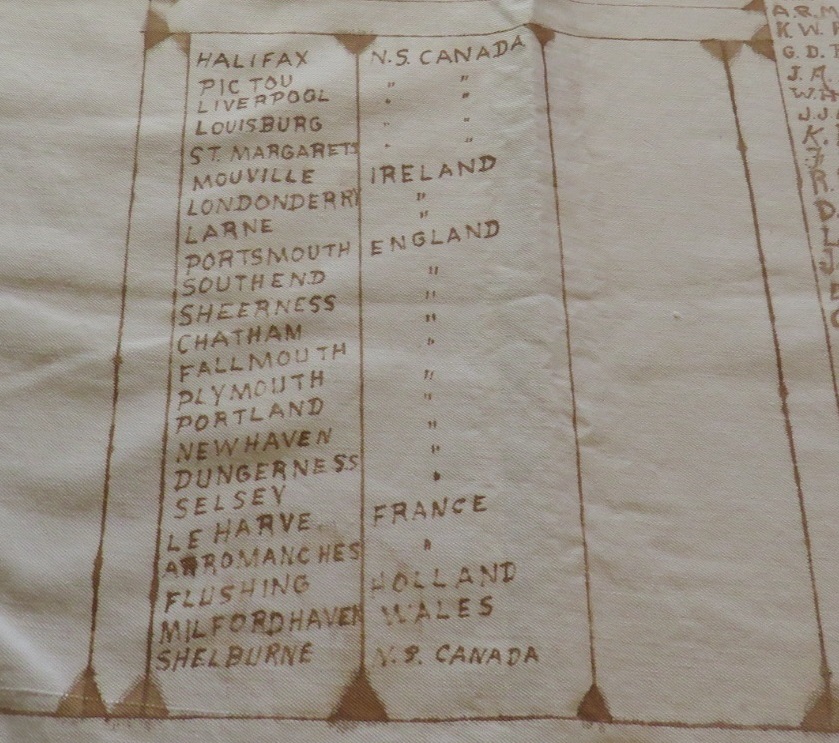 HALIFAX N.S. CANADA
PICTOU " "
LIVERPOOL " "
LOUISBURG " "
ST. MARGARETS " "
MOUVILLE IRELAND
LONDONDERRY "
LARNE "
PORTSMOUTH ENGLAND
SOUTHEND "
SHEERNESS "
CHATHAM "
FALLMOUTH "
PLYMOUTH "
PORTLAND "
NEWHAVEN "
DUNGERNESS "
SELSEY "
LE HARVE FRANCE
ARROMANCHES "
FLUSHING HOLLAND
MILFORDHAVEN WALES
SHELBURNE N.S. CANADA
A.R.M
K.W.
G.D.
J.A
W.H
J.J
K.